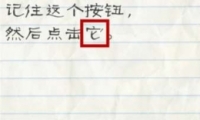 记住这个按钮，
然后点击它。